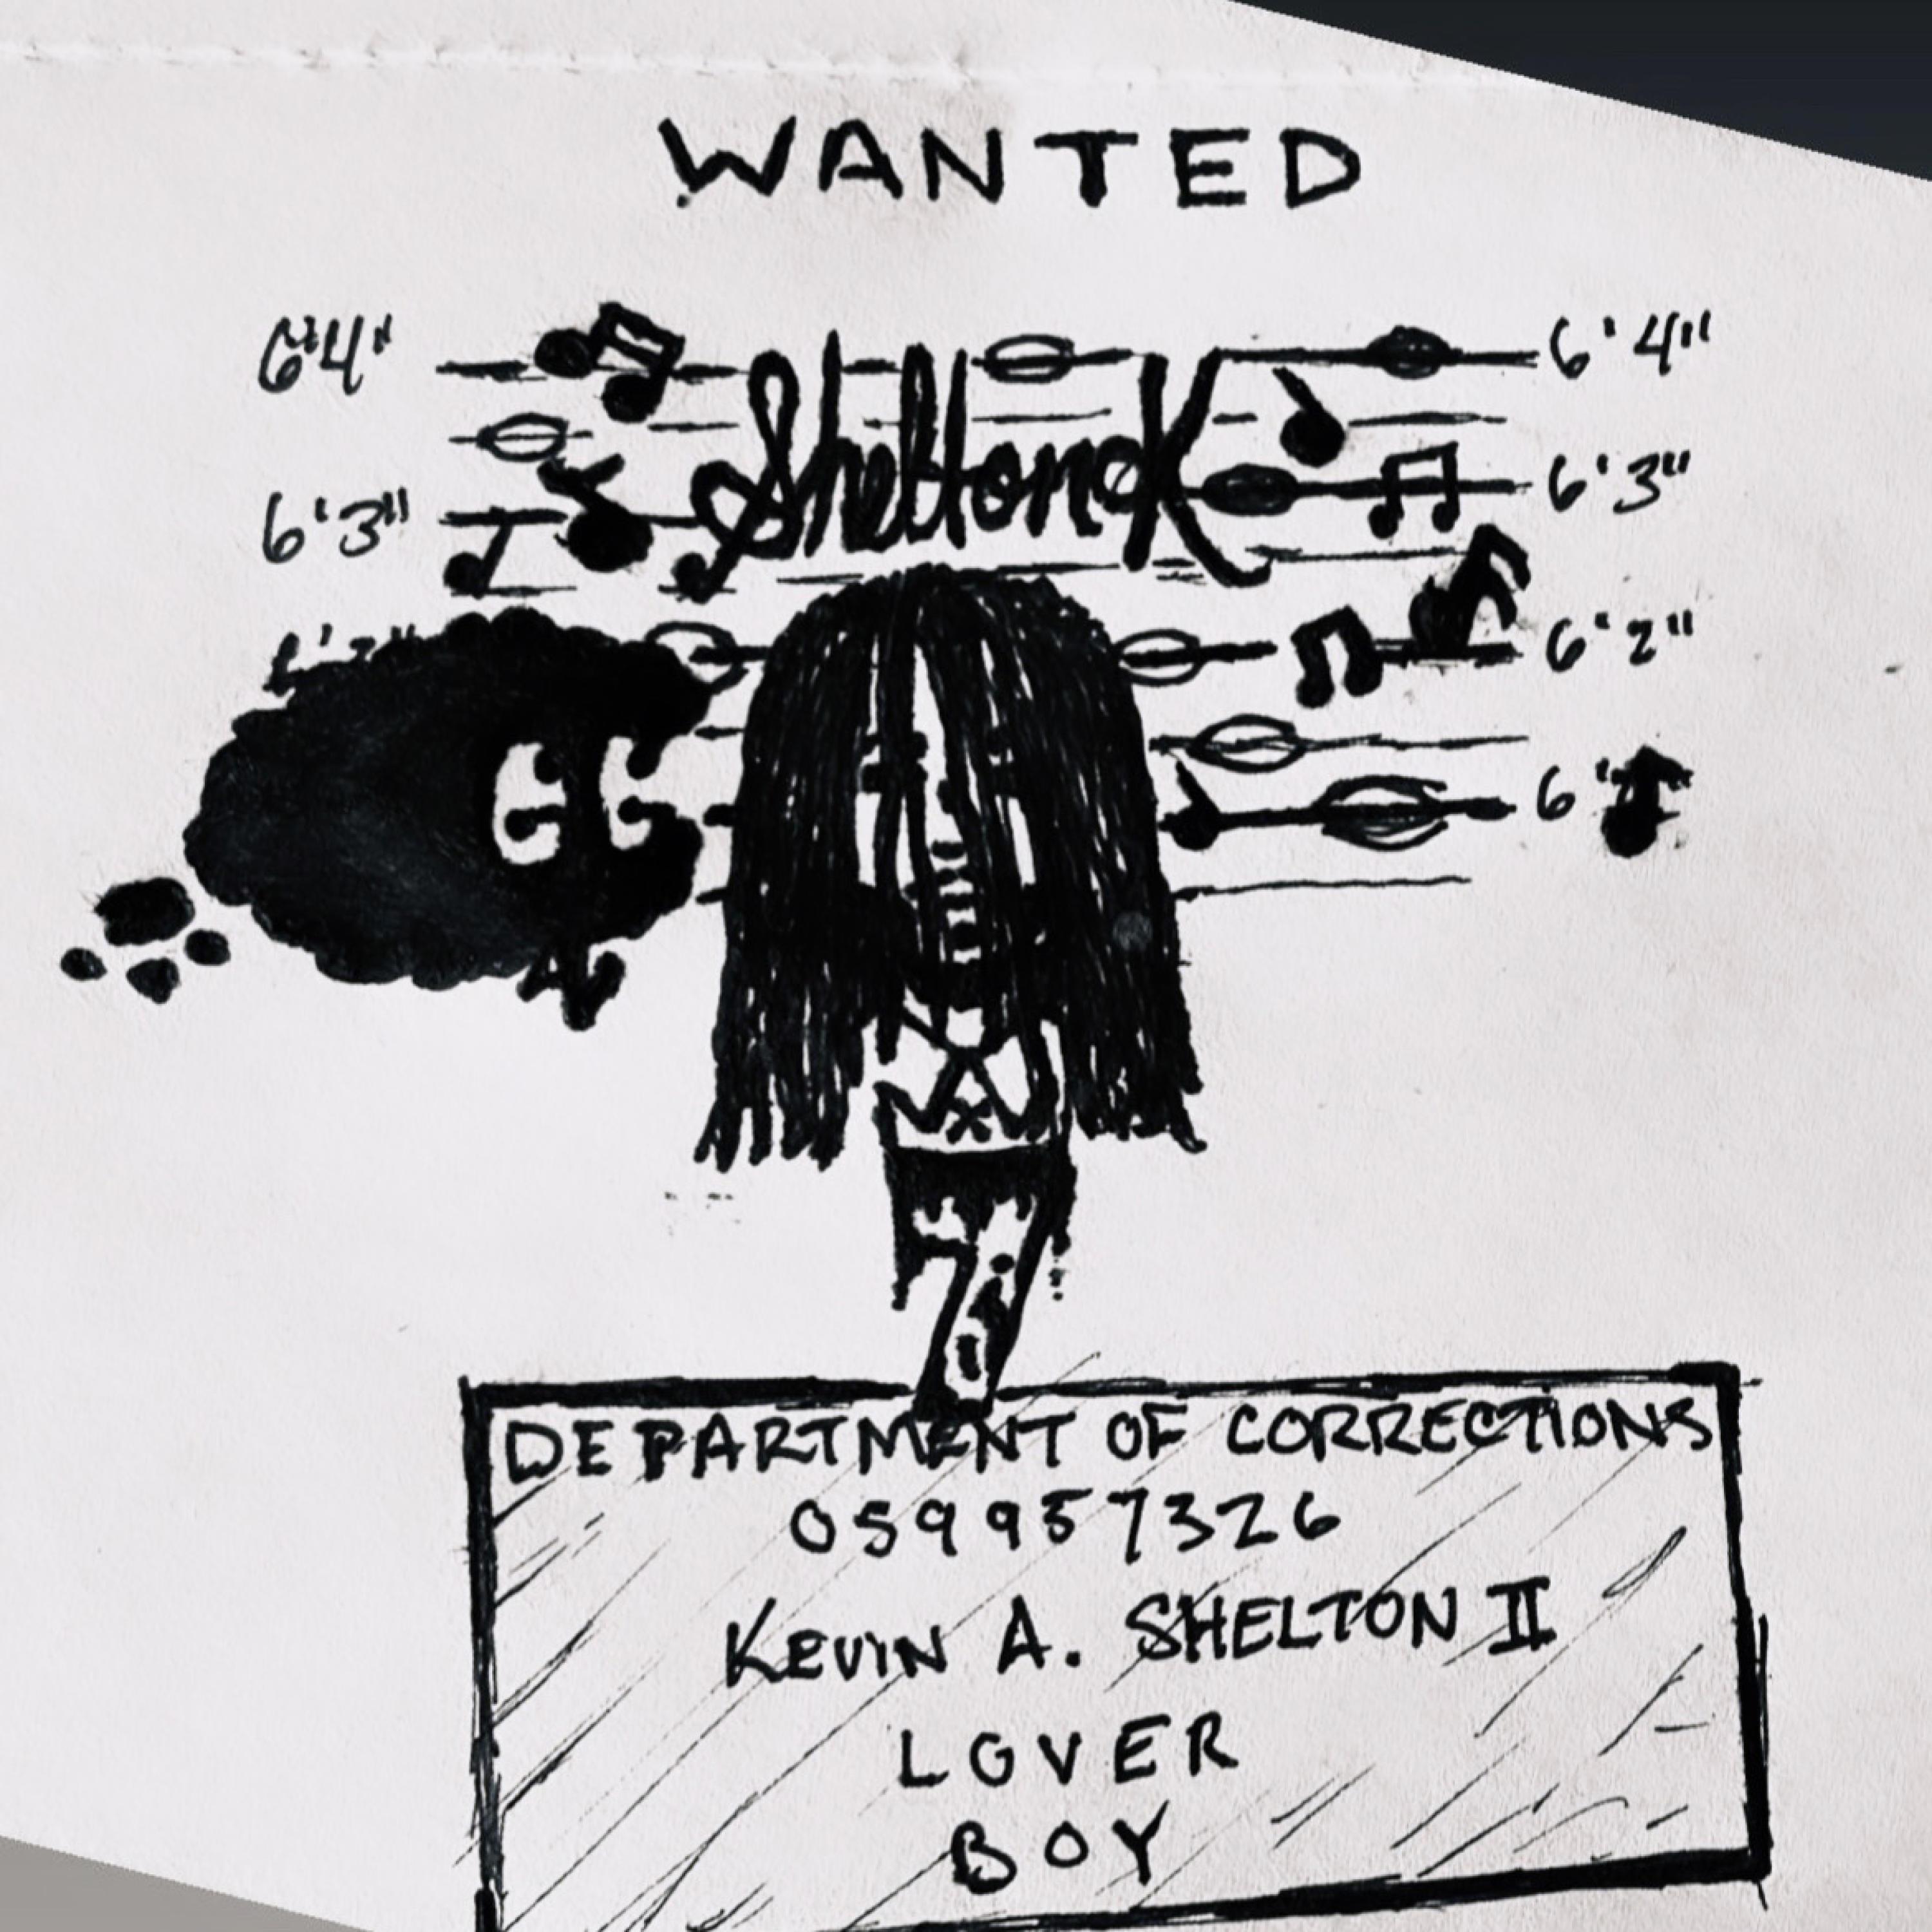 WANTED
6'4" 6'4"
SheltonK
6'3" 6'3"
6'2"
GG
6'
DEPARTMENT OF CORRECTIONS
059957326
KEVIN A. SHELTON II
LOVER
BOY